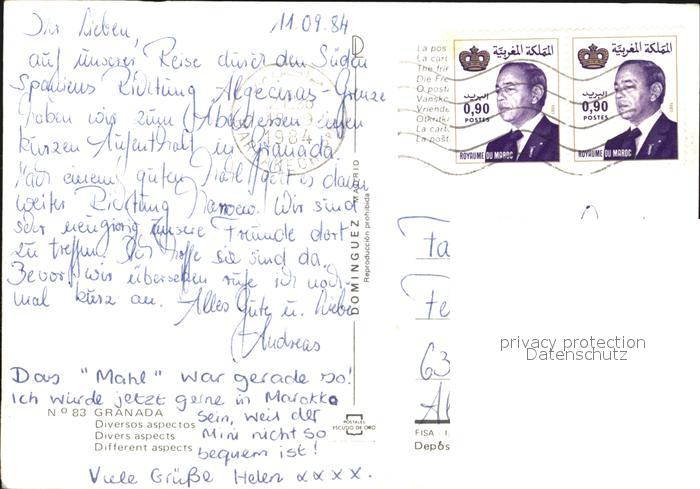 11.09.84
Ihr Lieben,
auf unserer Reise durch den Süden
Spaniens Richtung Algeciras - Grenze
haben wir zum Abendessen einen
kurzen Aufenthalt in Granada
Nach einem guten Mahl geht es dann
weiter Richtung Marokko. Wir sind
sehr neugierig unsere Freunde dort
zu treffen. Wir hoffe sie sind da.
Bevor wir übersetzen rufe ich noch-
mal kurz an. Alles Gute u. Liebe
Andreas
Das "Mahl" war gerade so!
Ich würde jetzt gerne in Marokko
sein, weil der
Mini nicht so
bequem ist!
Viele Grüße Helen xxxx.
N.º 83 GRANADA
Diversos aspectos
Divers aspects
Different aspects
POSTALES
ESCUDO DE ORO
DOMINGUEZ MADRID
Reproducción prohibida
1984
La pos
La cart
The frie
Die Fre
O posta
Vansko
Vriende
Otkritk
La cart
La pošt
المملكة المغربية
البريد
0,90
POSTES
ROYAUME DU MAROC
المملكة المغربية
البريد
0,90
POSTES
ROYAUME DU MAROC
Fa
Fe
63
Al
privacy protection
Datenschutz
FISA - I
Depós